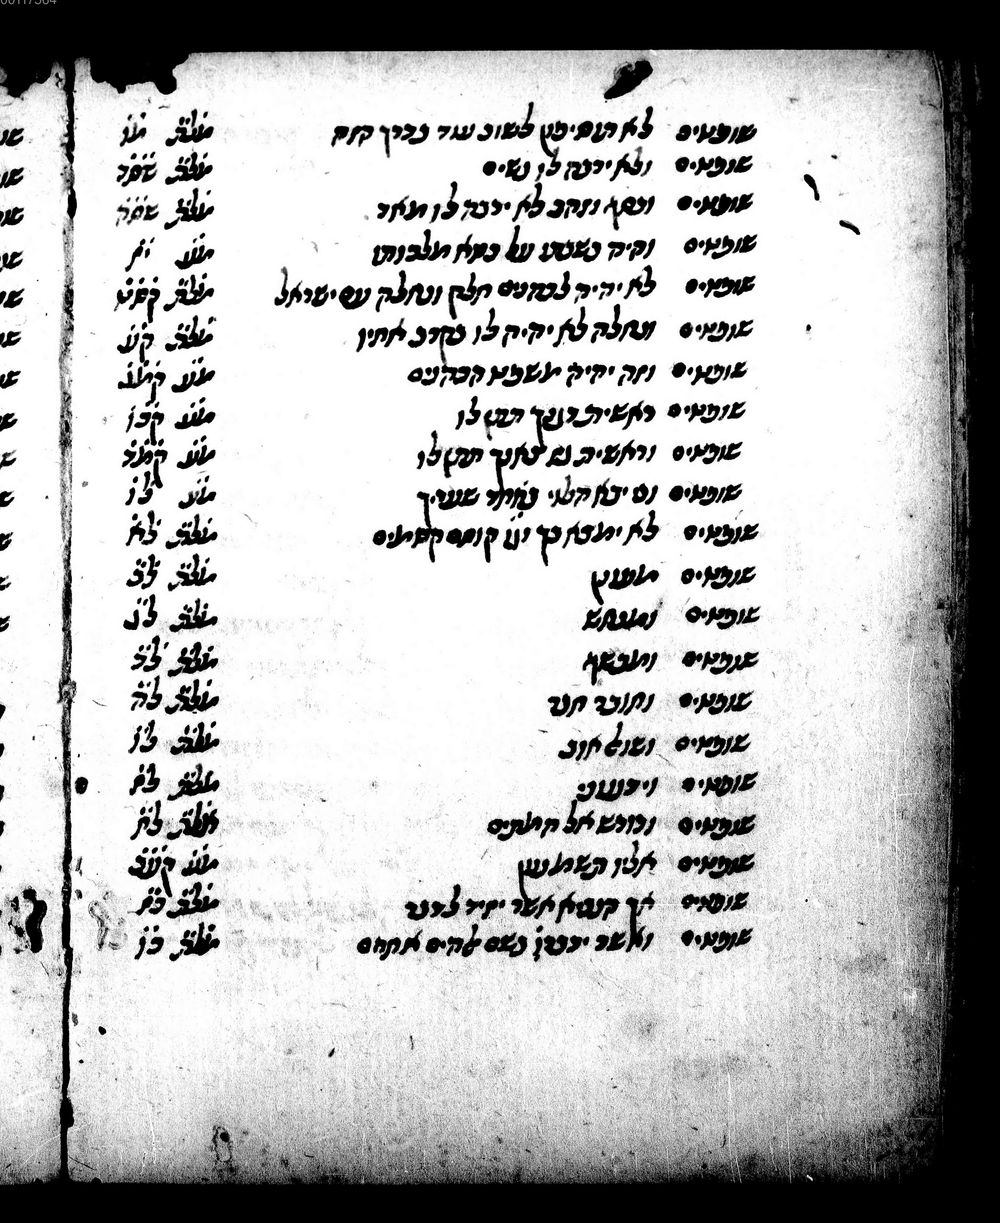 שופטים לא תוסיפון לשוב עוד בדרך הזה מצֹתֹ מֹוֹ
שופטים ולא ירבה לו נשים מצֹתֹ
שופטים וכסף וזהב לא ירבה לו מאד מצֹתֹ
שופטים והיה כשבתו על כסא מלכותו מֹעֹ יֹחֹ
שופטים לא יהיה לכהנים חלק ונחלה עם ישראל מצֹתֹ
שופטים ונחלה לא יהיה לו בקרב אחיו מצֹתֹ
שופטים וזה יהיה משפט הכהנים מֹעֹ קֹמֹגֹ
שופטים ראשית דגנך תתן לו מֹעֹ קֹכֹוֹ
שופטים וראשית גז צאנך תתן לו מֹעֹ קֹמֹדֹ
שופטים וכי יבא הלוי מאחד שעריך מֹעֹ לֹוֹ
שופטים לא ימצא בך וגו קוסם קסמים מצֹתֹ לֹאֹ
שופטים מעונן מצֹתֹ לֹבֹ
שופטים ומנחש מצֹתֹ לֹגֹ
שופטים ומכשף מצֹתֹ לֹדֹ
שופטים וחובר חבר מצֹתֹ לֹהֹ
שופטים ושואל אוב מצֹתֹ לֹוֹ
שופטים וידעוני מצֹתֹ לֹזֹ
שופטים ודורש אל המתים מצֹתֹ לֹחֹ
שופטים אליו תשמעון מֹעֹ קֹעֹבֹ
שופטים אך הנביא אשר יזיד לדבר מצֹתֹ כֹזֹ
שופטים ואשר ידבר בשם אלהים אחרים מצֹתֹ כֹוֹ